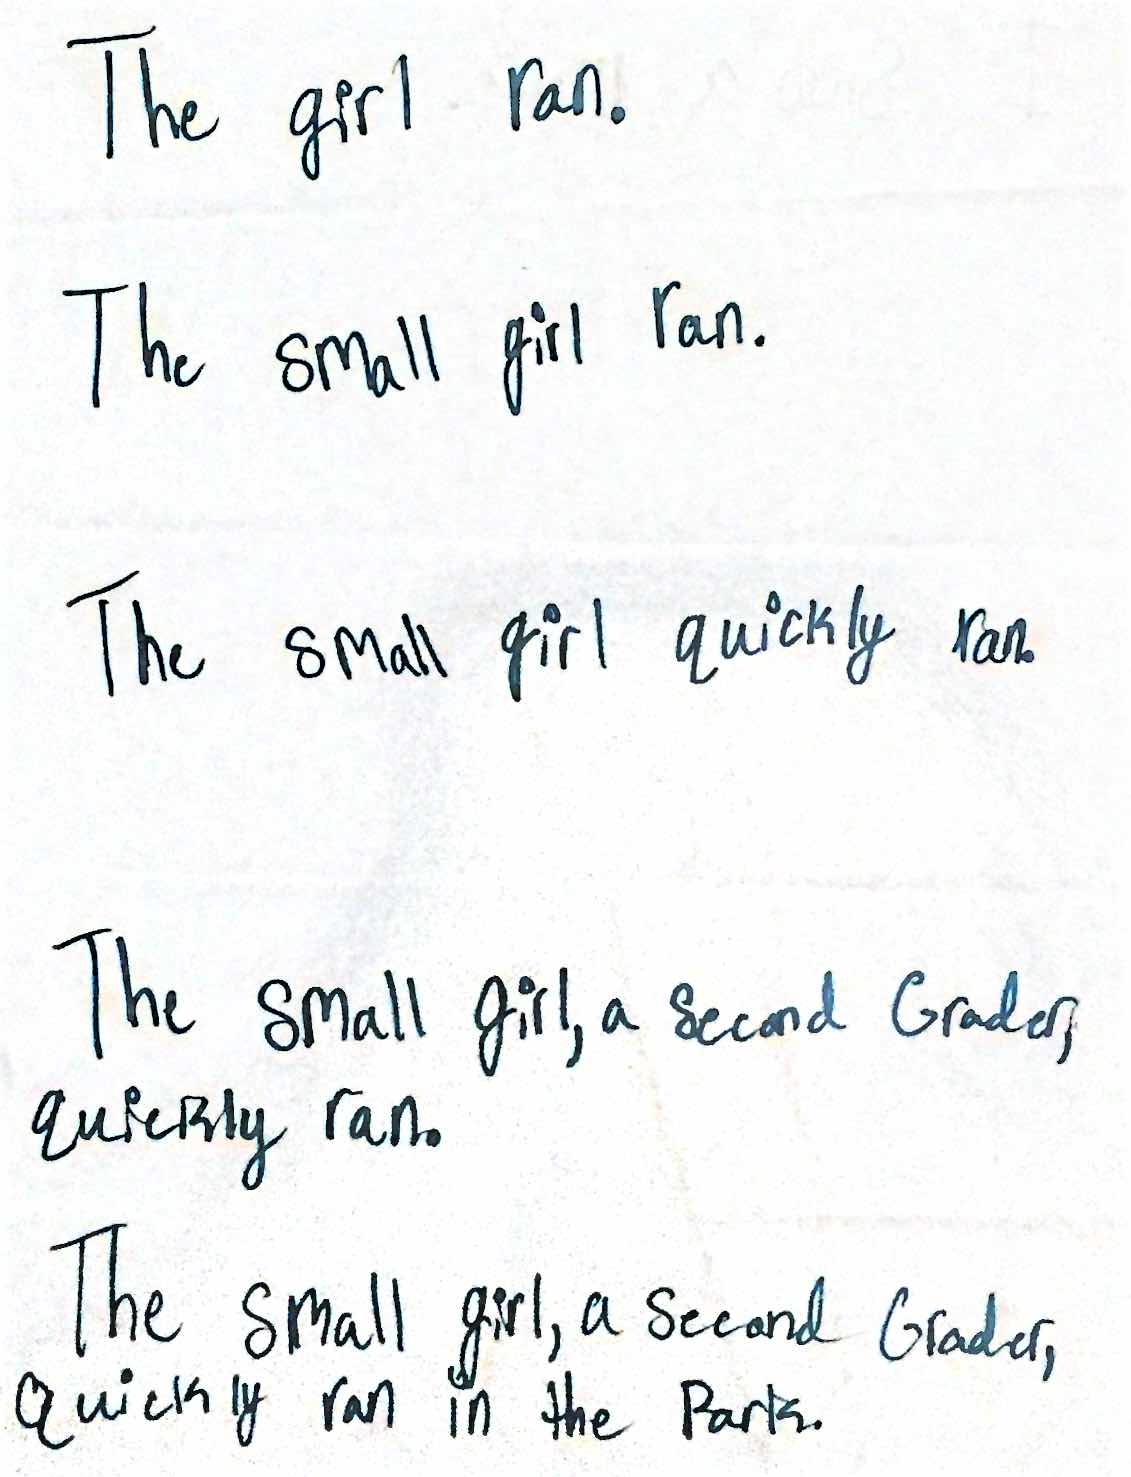 The girl ran.
The small girl ran.
The small girl quickly ran.
The small girl, a Second Grader,
quickly ran.
The small girl, a Second Grader,
Quickly ran in the Park.